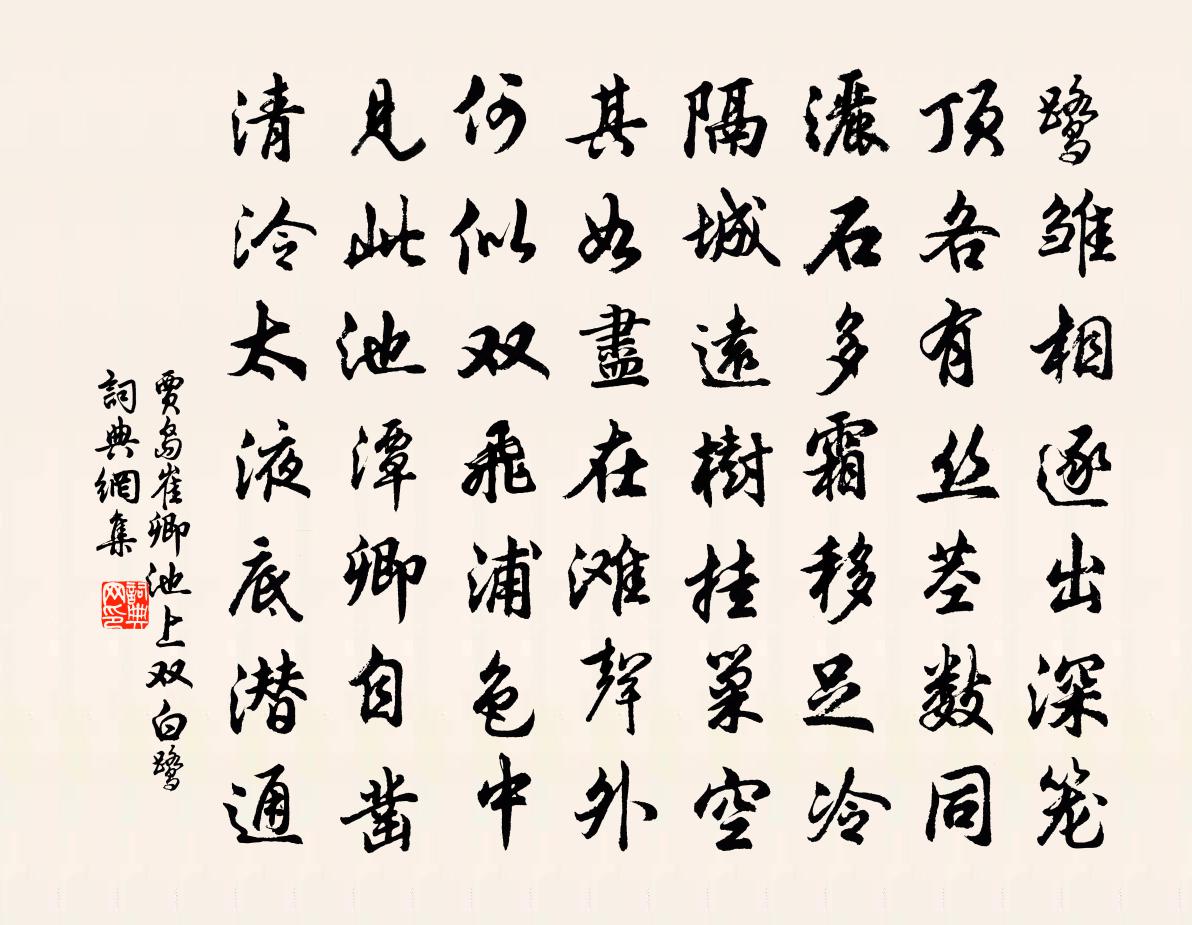 鹭雏相逐出深笼
顶各有丝茎数同
灑石多霜移足冷
隔城遠樹挂巢空
其如盡在滩聲外
何似双飛浦色中
見此池潭卿自凿
清泠太液底潜通
賈島崔卿池上双白鹭
詞典網集
詞典网印